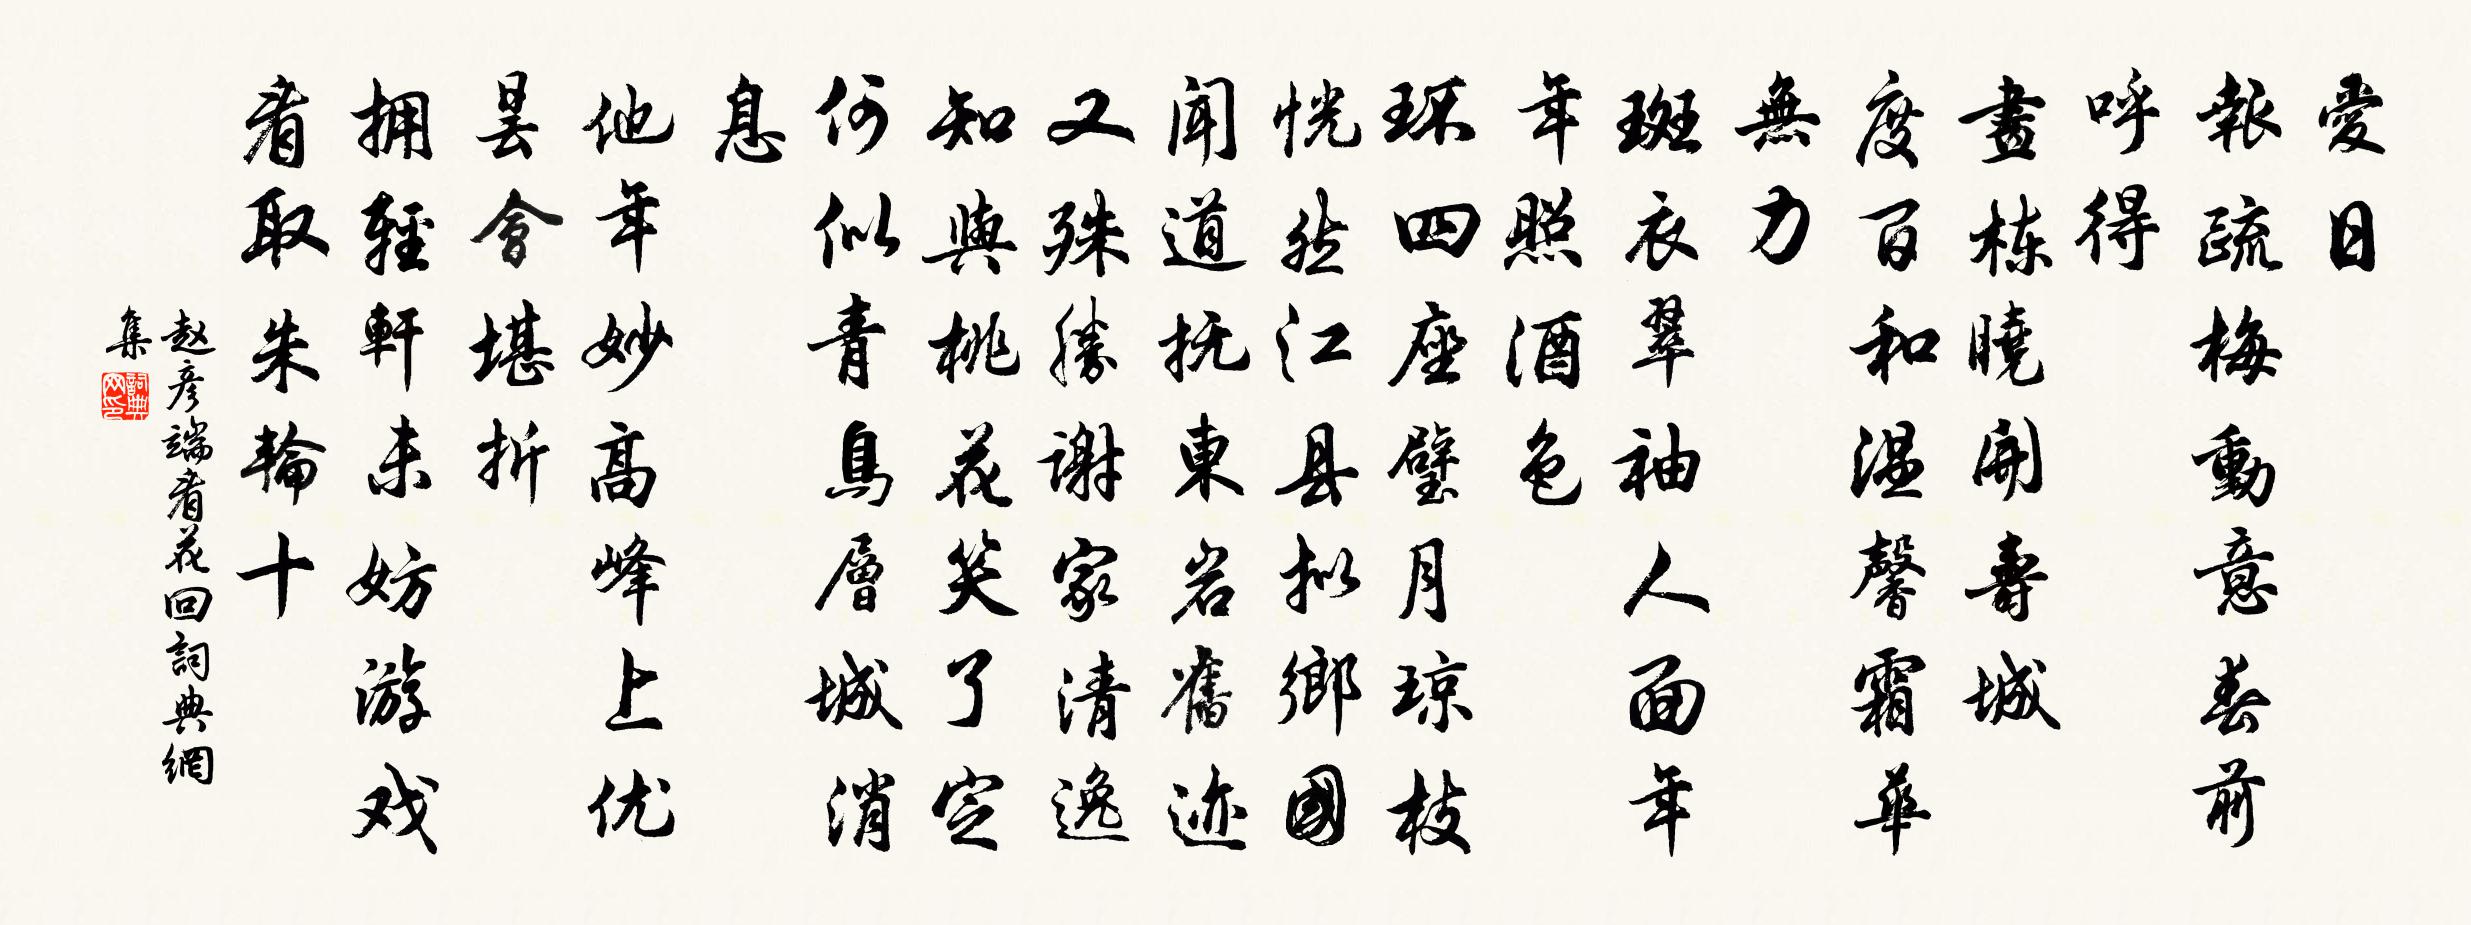 愛日
報疏梅動意春前
呼得
畫栋曉開壽城
度百和温馨霜華
無力
斑衣翠袖人面年
年照酒色
环四座璧月琼枝
恍然江县拟鄉國
闻道抚東岩舊迹
又殊勝谢家清逸
知與桃花笑了定
何似青鳥層城消
息
他年妙高峰上优
昙會堪折
拥輕軒未妨游戏
看取朱輪十
赵彦端看花回詞典網
集
詞典网印